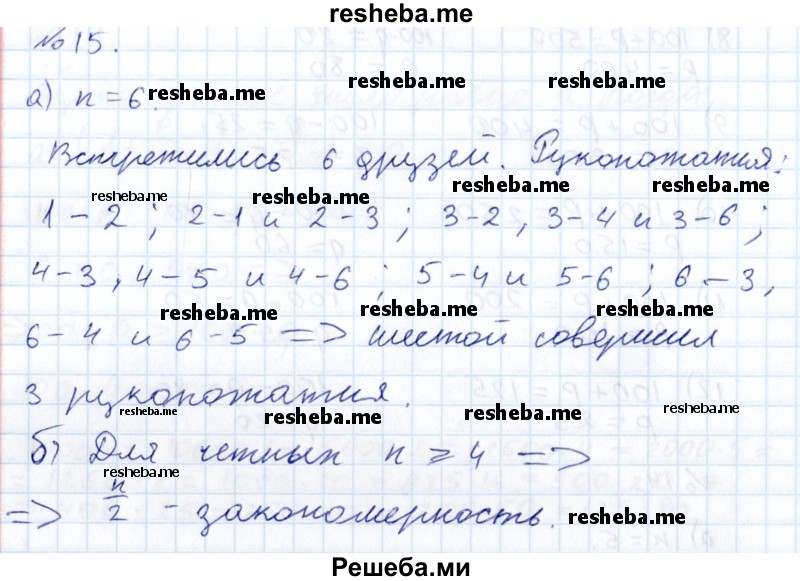 resheba.me
№ 15.
а) n = 6. resheba.me resheba.me resheba.me
Встретились 6 друзей. Рукопожатия:
resheba.me resheba.me resheba.me resheba.me
1 – 2 ; 2-1 и 2-3 ; 3-2, 3-4 и 3-6 ;
4-3, 4-5 и 4-6 ; 5-4 и 5-6 ; 6-3,
resheba.me resheba.me resheba.me
6-4 и 6-5 => шестой совершил
3 рукопожатия.
resheba.me resheba.me resheba.me resheba.me
б) Для четных n ⩾ 4 =>
resheba.me
=> n/2 - закономерность. resheba.me
Решеба.ми